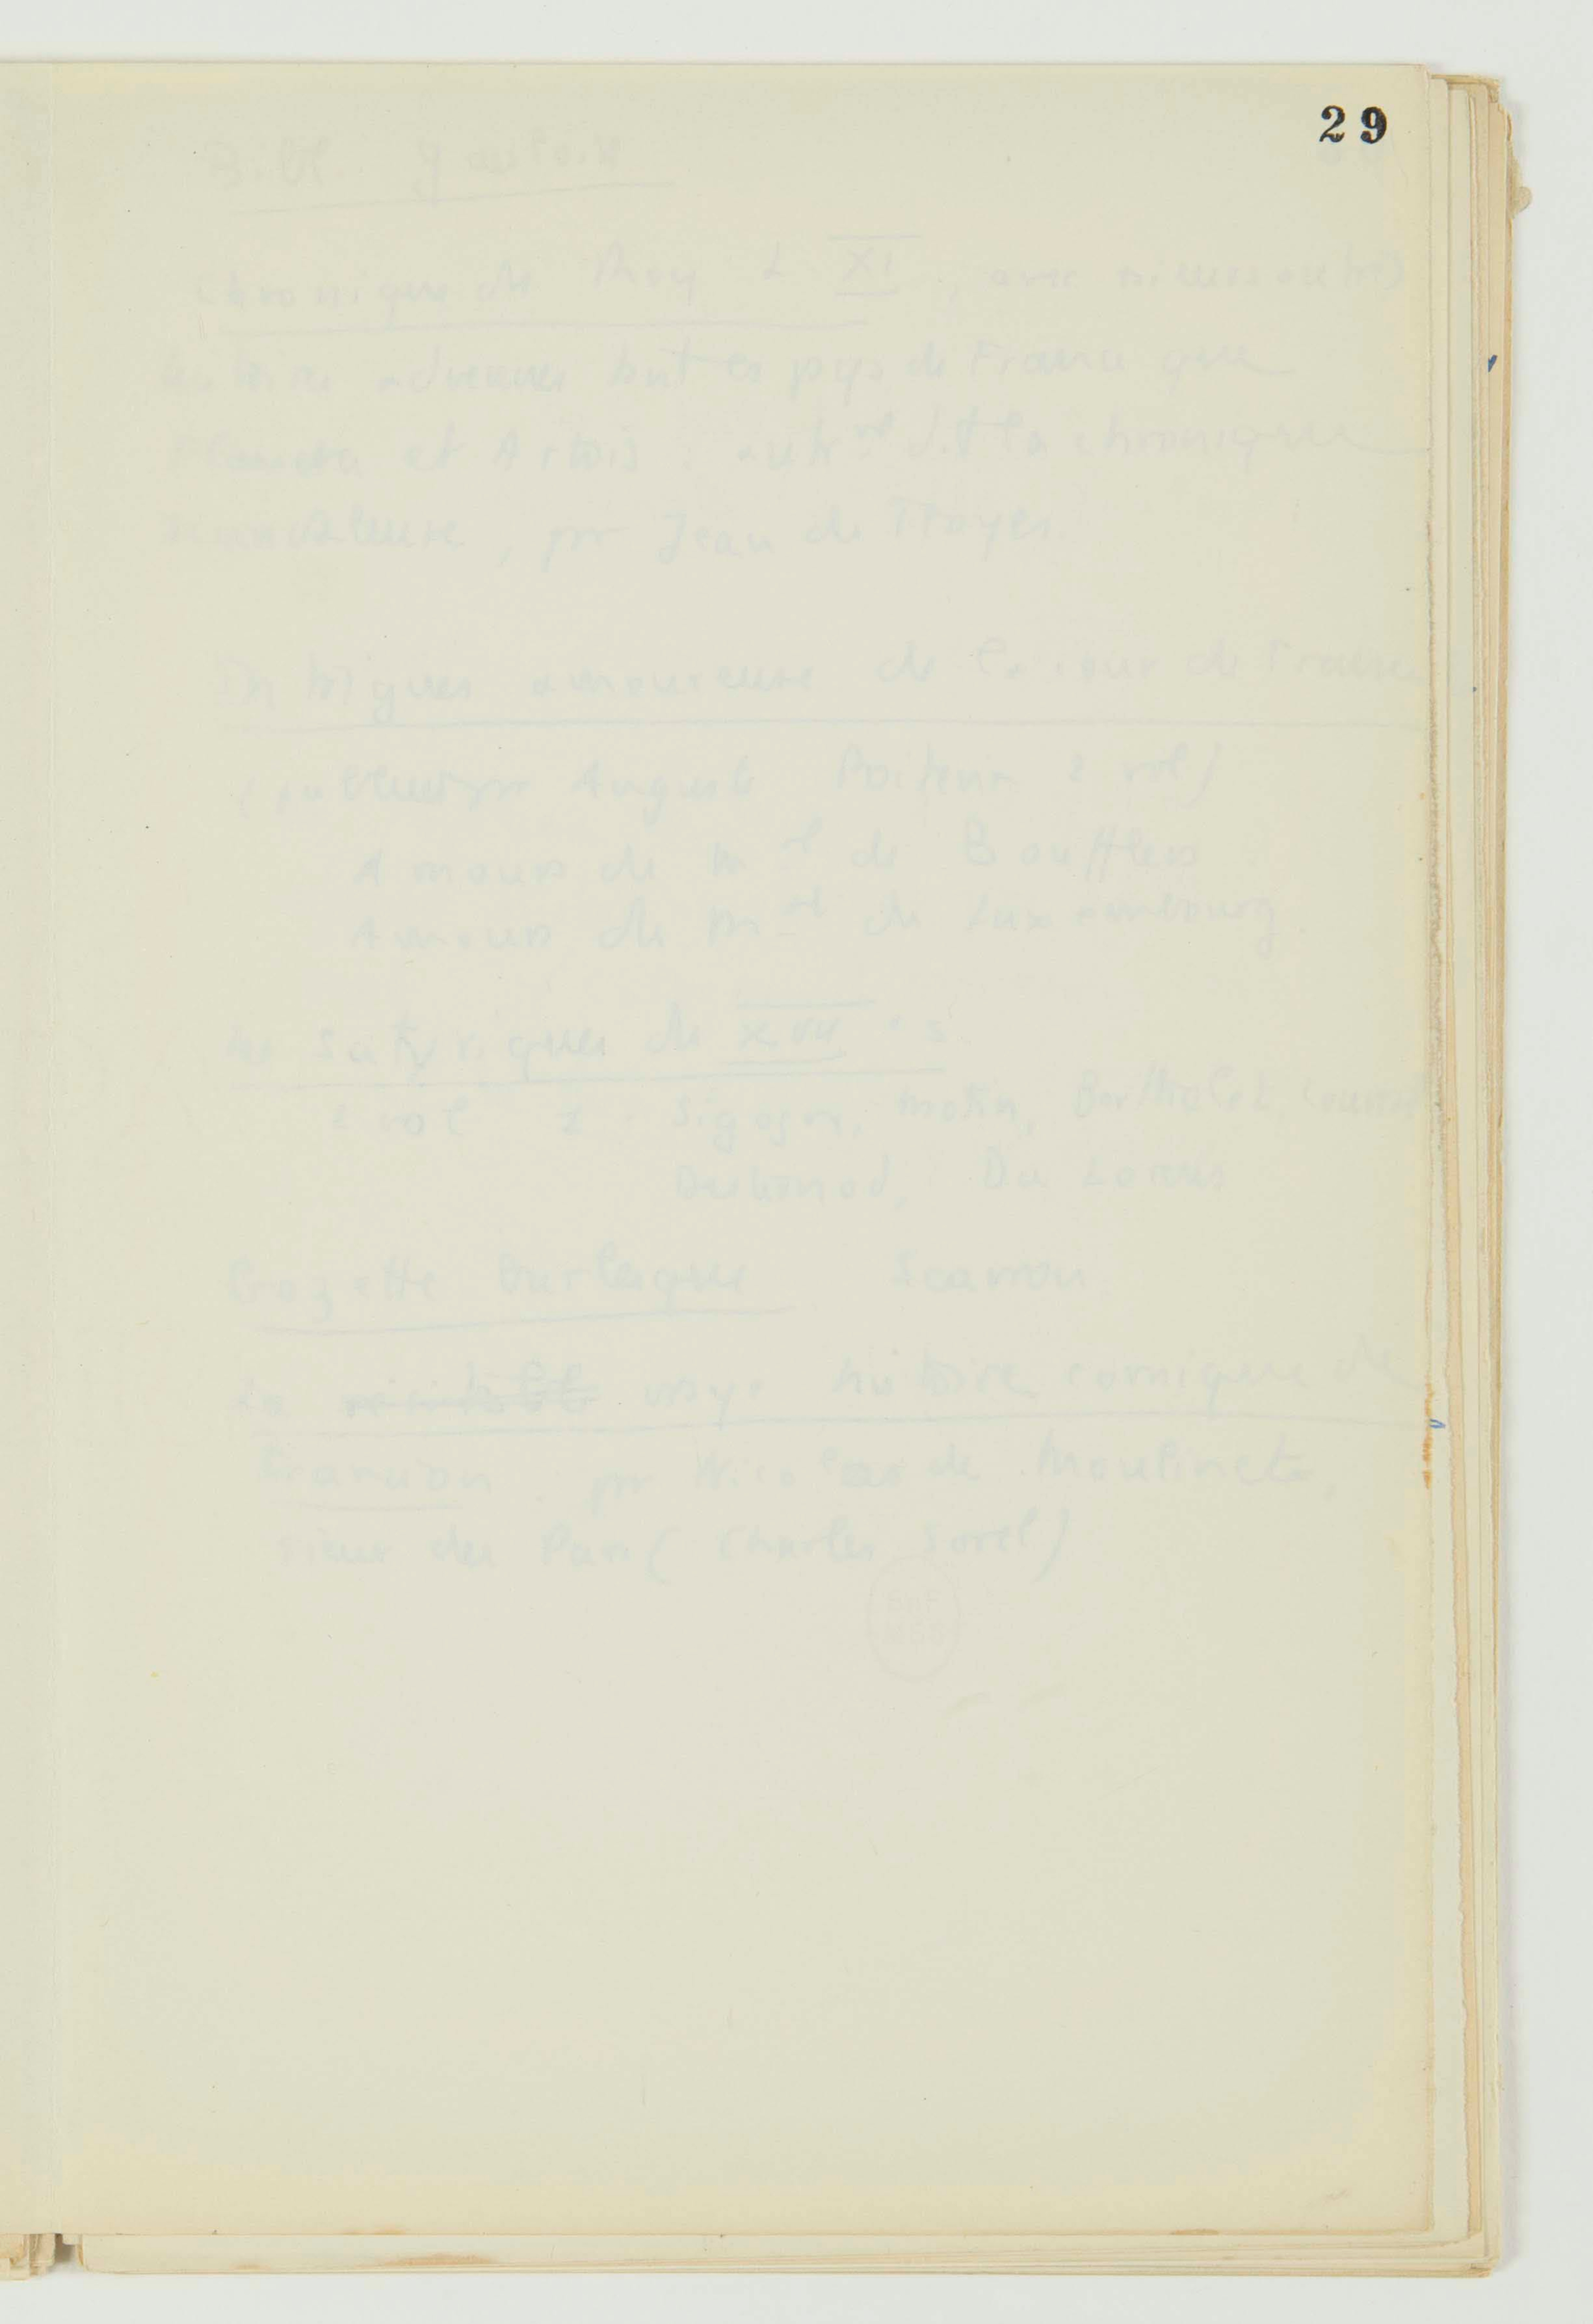 29
Bibl. gauloise
Chronique de Roy L XI, avec
histoires advenues tant es pays de France que
Flandre et Artois. autrt dit la chronique
scandaleuse, par Jean de Troyes.
Intrigues amoureuse de la cour de France
(par Auguste Poitevin 2 vol)
Amours de Mal de Boufflers
Amours de Mal de Luxembourg
les satyriques du XVII e s.
2 vol 2. Sigogne, Motin, Berthelot,
Du Lorens
Gazette burlesque Scarron.
La vraye histoire comique de
Francion. par Nicolas de Moulinet,
sieur du Parc (Charles Sorel)
BnF
MSS